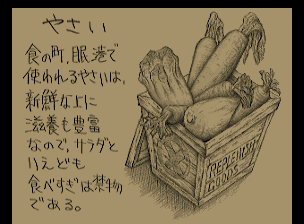 やさい
食の町、眼港で
使われるやさいは、
新鮮な上に
滋養も豊富
なので、サラダと
いえども
食べすぎは禁物
である。
GOODS